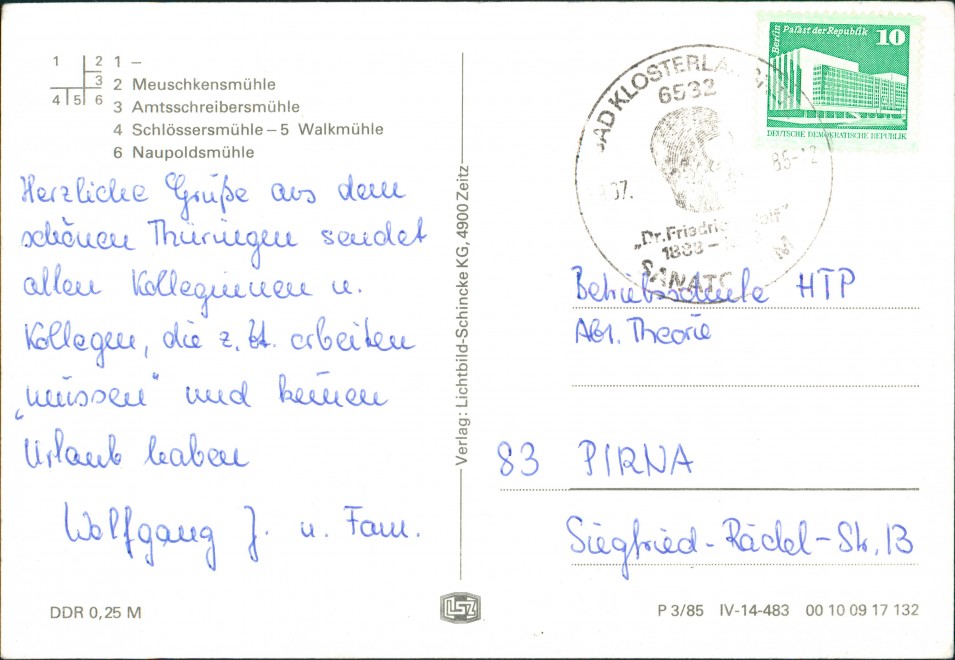 1 2 1 –
3 2 Meuschkensmühle
4 5 6 3 Amtsschreibersmühle
4 Schlössersmühle – 5 Walkmühle
6 Naupoldsmühle
Herzliche Grüße aus dem
schönen Thüringen sendet
allen Kolleginnen u.
Kollegen, die z. Zt. arbeiten
„müssen" und keinen
Urlaub haben
Wolfgang J. u. Fam.
DDR 0,25 M
Verlag: Lichtbild-Schincke KG, 4900 Zeitz
LSZ
Berlin Palast der Republik 10
DEUTSCHE DEMOKRATISCHE REPUBLIK
6532
„Dr. Friedrich
Betriebsschule HTP
Abt. Theorie
83 PIRNA
Siegfried-Rädel-Str. 13
P 3/85 IV-14-483 00 10 09 17 132